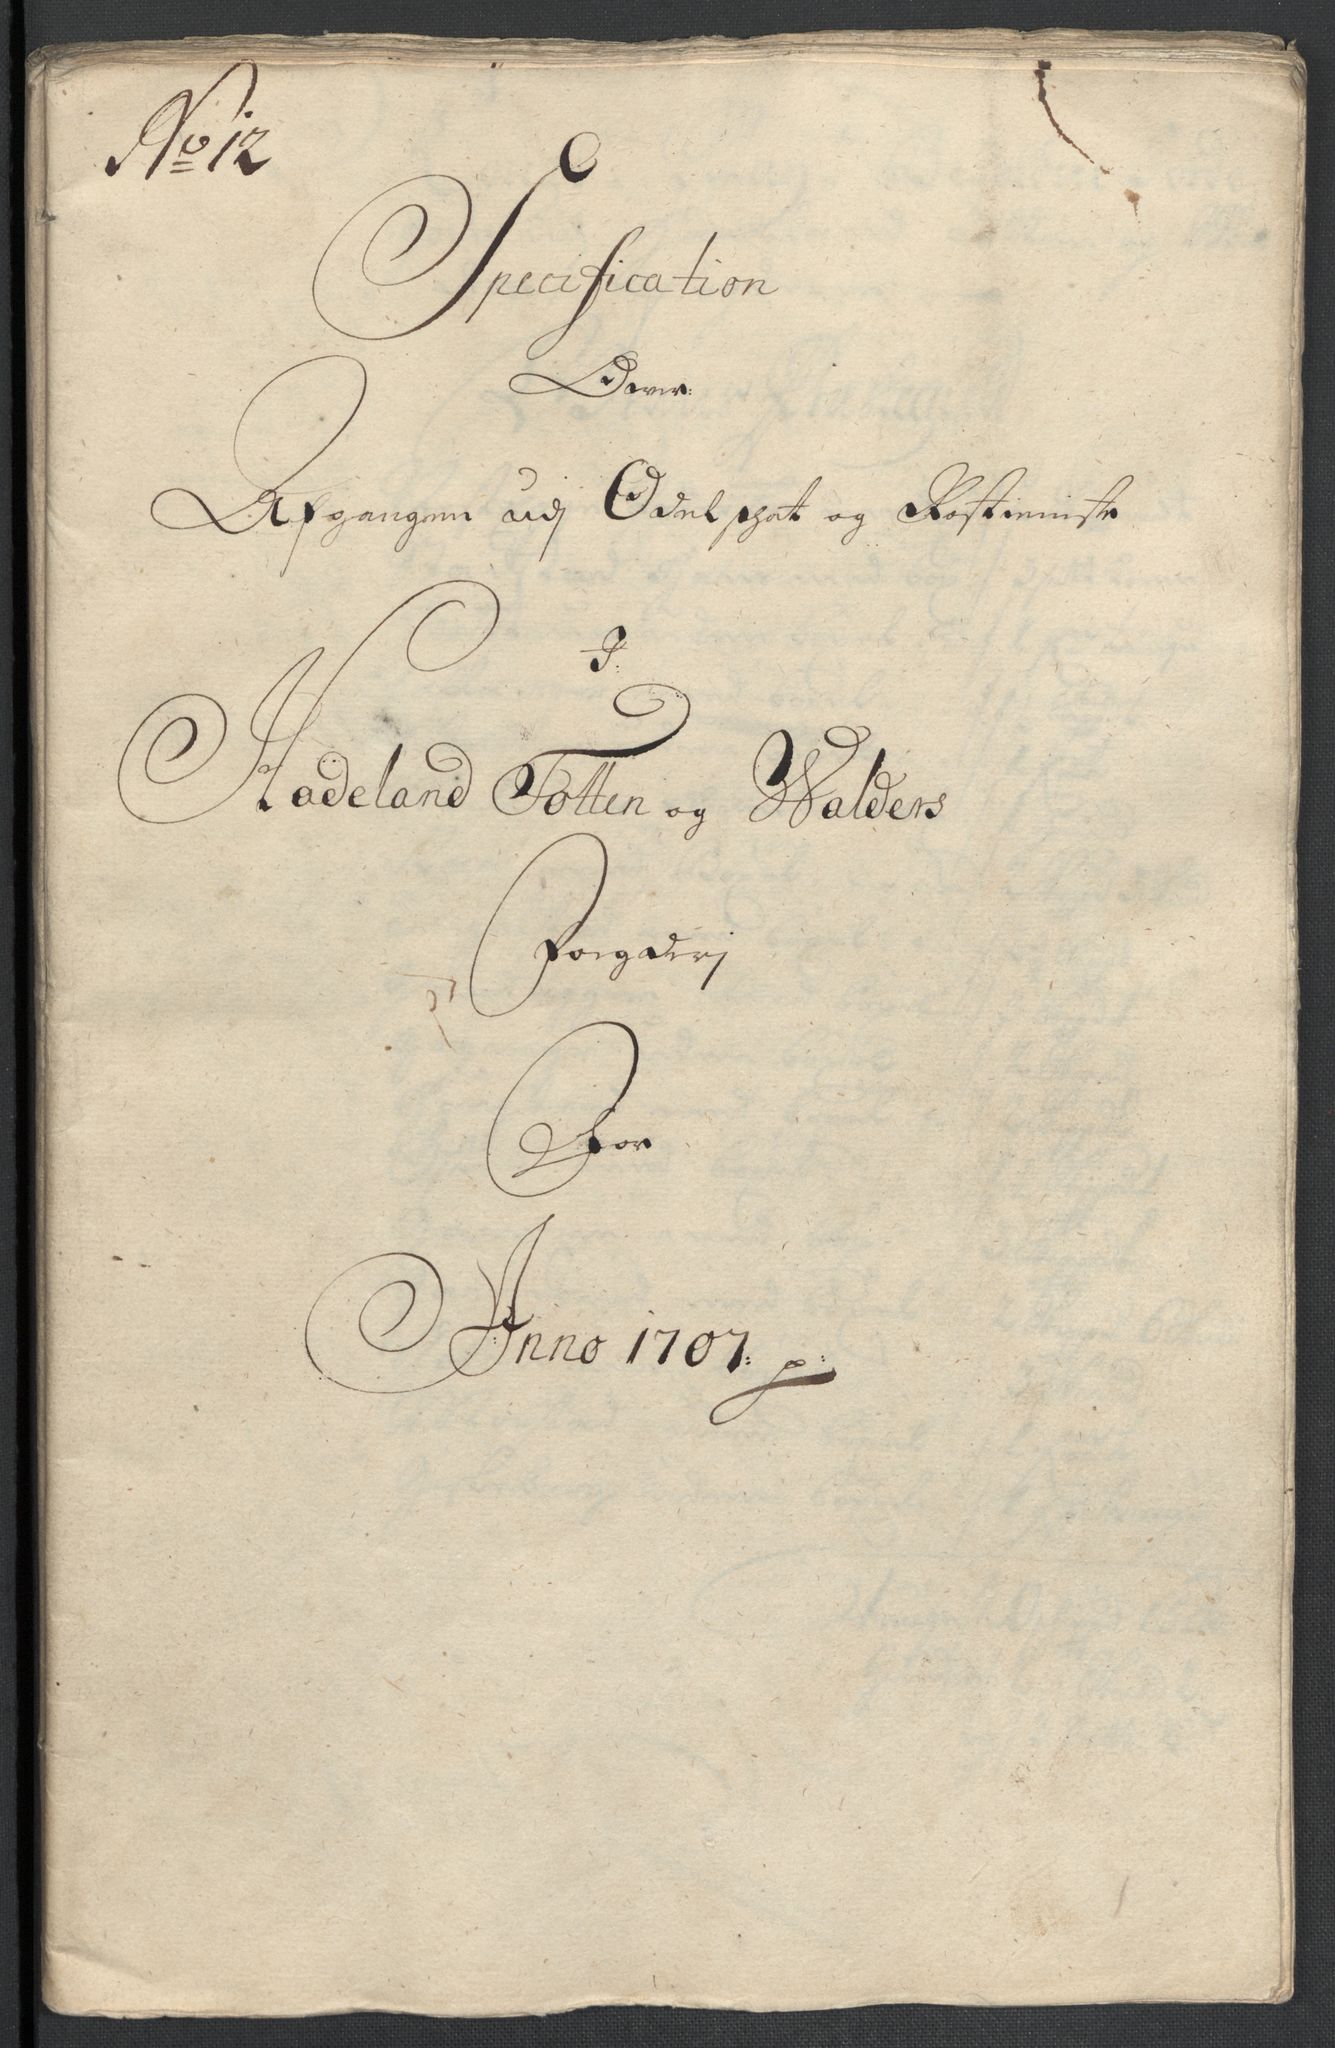 No 12
Specification
Over
Afgangen udj Odelschat og Rostieniste
J
Hadeland Totten og Walders
Fogderj
For
Anno 1707. p: